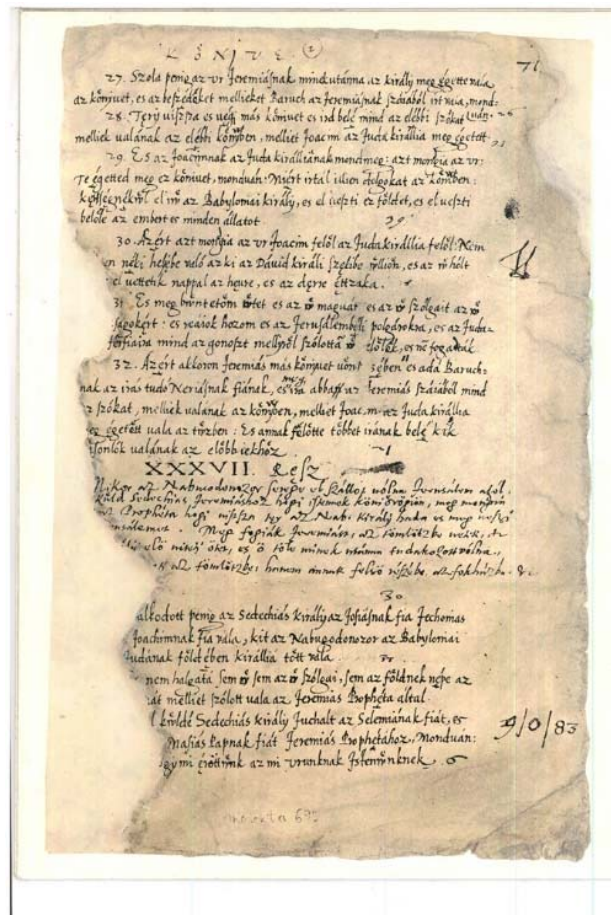 KÖNJVE. (2)
71
27. Szola penig az vr Jeremiásnak minekutánna az király meg egette vala
az kömjvet, es az beszédeket mellieket Baruch az Jeremiásnak szaiából irt vala, mond-
28. Terÿ viszsza es vegÿ más kömjvet es ird belé mind az elébbi szókat
melliek valának az elébbi kömjben, melliet Joacim az Juda királlia meg egetett
29. Es az Joacimnak az Juda királliának mond meg: azt mongia az vr:
Te egetted meg ez kömjvet, monduán: Miért irtal illien dolgokat az kömjben:
el iw az Babylomiai király, es el veszti ez földet, es el veszti
belöle az embert es minden állatot
29
30. Azért azt mongia az vr Joacim felöl az Juda királlia felöl: Nem
en néki: az ki az Dávid király széki be vllion, es az w hólt
el vettetik nappal az heure, es az derre éttzaka.
31. Es meg bwntetöm wtet es az w magvát es az w szolgait az w
ságokért: es reáiok hozom es az Jerusálembéli polgárokra, es az Juda-
férfiaira mind az gonoszt mellyröl szólottā w elölök, es nē fogatták
32. Azért akkoron Jeremiás más kömjvet uön kezében es adá Baruch-
nak az irás tudó Neriásnak fiának, es irá abba az Jeremiás szaiából mind
szókat, melliek valának az kömjben, melliet Joacim az Juda királlia
eg egetött vala az tüzben: Es annak fölötte többet irának belé kik
sonlók valának az elöbbiekhöz
XXXVII. Resz
Mikor az Nabucodonozor serege el szállot volna Jerusálem alól,
küld Sedechias Jeremiáshoz hogi Istennek köniörögiön, meg mongia
Prophéta hogi viszsza tér az Nab: király hada es meg veszi
Meg fogiák Jeremiást, az tömlötzbe vetik,
az tömlötzbe, hanem annak felsö részébe,
30
alkodott penig az Sedechiás király az Josiásnak fia Jechonias
Joachimnak fia vala, kit az Nabugodonozor az Babylomiai
Judának földeben királliá tött vala.
nem halgatá sem w sem az w szolgai, sem az földnek népe az
melliet szólott vala az Jeremias Propheta altul.
kwldé Sedechiás király Juchalt az Selemiának fiát, es
Papnak fiát Jeremiás Prophétához, Monduan:
gÿ mi éröttwnk az mi vrunknak Istenwnknek
9/0/83